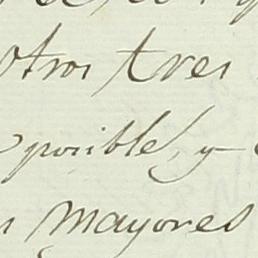 otros tres
posible, y
mayores